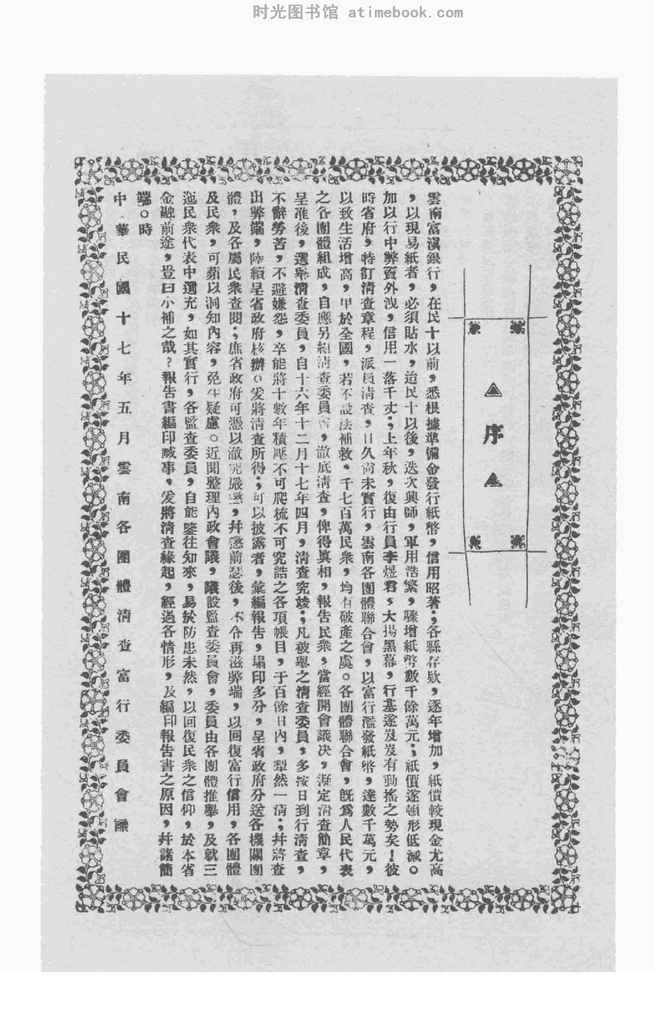 时光图书馆 atimebook.com
▲序▲
雲南富滇銀行，在民十以前，悉根據準備金發行紙幣，信用昭著；各縣存欵，逐年增加，紙價較現金尤高
，以現易紙者，必須貼水，迨民十以後，迭次興師，軍用浩繁，驟增紙幣數千餘萬元；紙價逐頓形低減。
加以行中弊竇外洩，信用一落千丈；上年秋，復由行員李煜君，大揭黑幕，行基遂岌岌有動搖之勢矣！彼
時省府，特訂清查章程，派員清查，日久尚未實行，雲南各團體聯合會，以富行濫發紙幣，達數千萬元，
以致生活增高，甲於全國，若不設法補救，千七百萬民衆，均有破產之處。各團體聯合會，旣爲人民代表
之各團體組成，自應另組清查委員會，澈底清查，俾得眞相，報告民衆，當經開會議决，擬定清查簡章，
呈准後，選舉清查委員，自十六年十二月十七年四月，清查完竣；凡被舉之清查委員，多按日到行清查，
不辭勞苦，不避嫌怨，卒能將十數年積壓不可爬梳不可究詰之各項帳目，于百餘日內，犂然一清；幷將查
出弊端，陸續呈省政府核辦。爰將清查所得，可以披露者，彙編報告，塌印多分，呈省政府分送各機關團
體，及各屬民衆查閱；庶省政府可憑以澈究嚴懲，幷懲前毖後，不令再滋弊端，以回復富行信用，各團體
及民衆，可藉以洞知內容，免生疑慮。近聞整理內政會議，議設監查委員會，委員由各團體推舉，及就三
迤民衆代表中選充，如其實行，各監查委員，自能鑒往知來，易於防患未然，以回復民衆之信仰，於本省
金融前途，豈曰小補之哉？報告書編印臧事，爰將清查緣起，經過各情形，及編印報告書之原因，幷諸簡
端。時
中華民國十七年五月雲南各團體清查富行委員會識